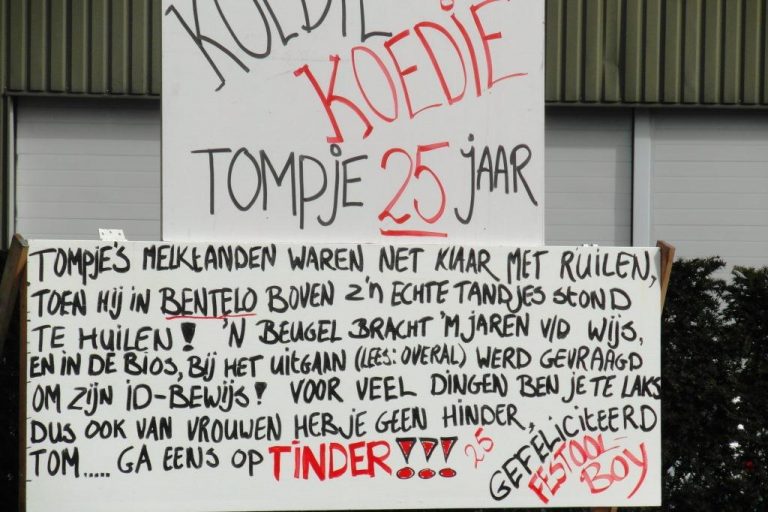 KOEDIE
KOEDIE
TOMPJE 25 JAAR
TOMPJE'S MELKTANDEN WAREN NET KLAAR MET RUILEN,
TOEN HIJ IN BENTELO BOVEN Z'N ECHTE TANDJES STOND
TE HUILEN! 'N BEUGEL BRACHT 'M JAREN V/D WIJS,
EN IN DE BIOS, BIJ HET UITGAAN (LEES: OVERAL) WERD GEVRAAGD
OM ZIJN ID-BEWIJS! VOOR VEEL DINGEN BEN JE TE LAKS
DUS OOK VAN VROUWEN HEB JE GEEN HINDER,
TOM..... GA EENS OP TINDER!!! 25
GEFELICITEERD
FESTOOL-
BOY